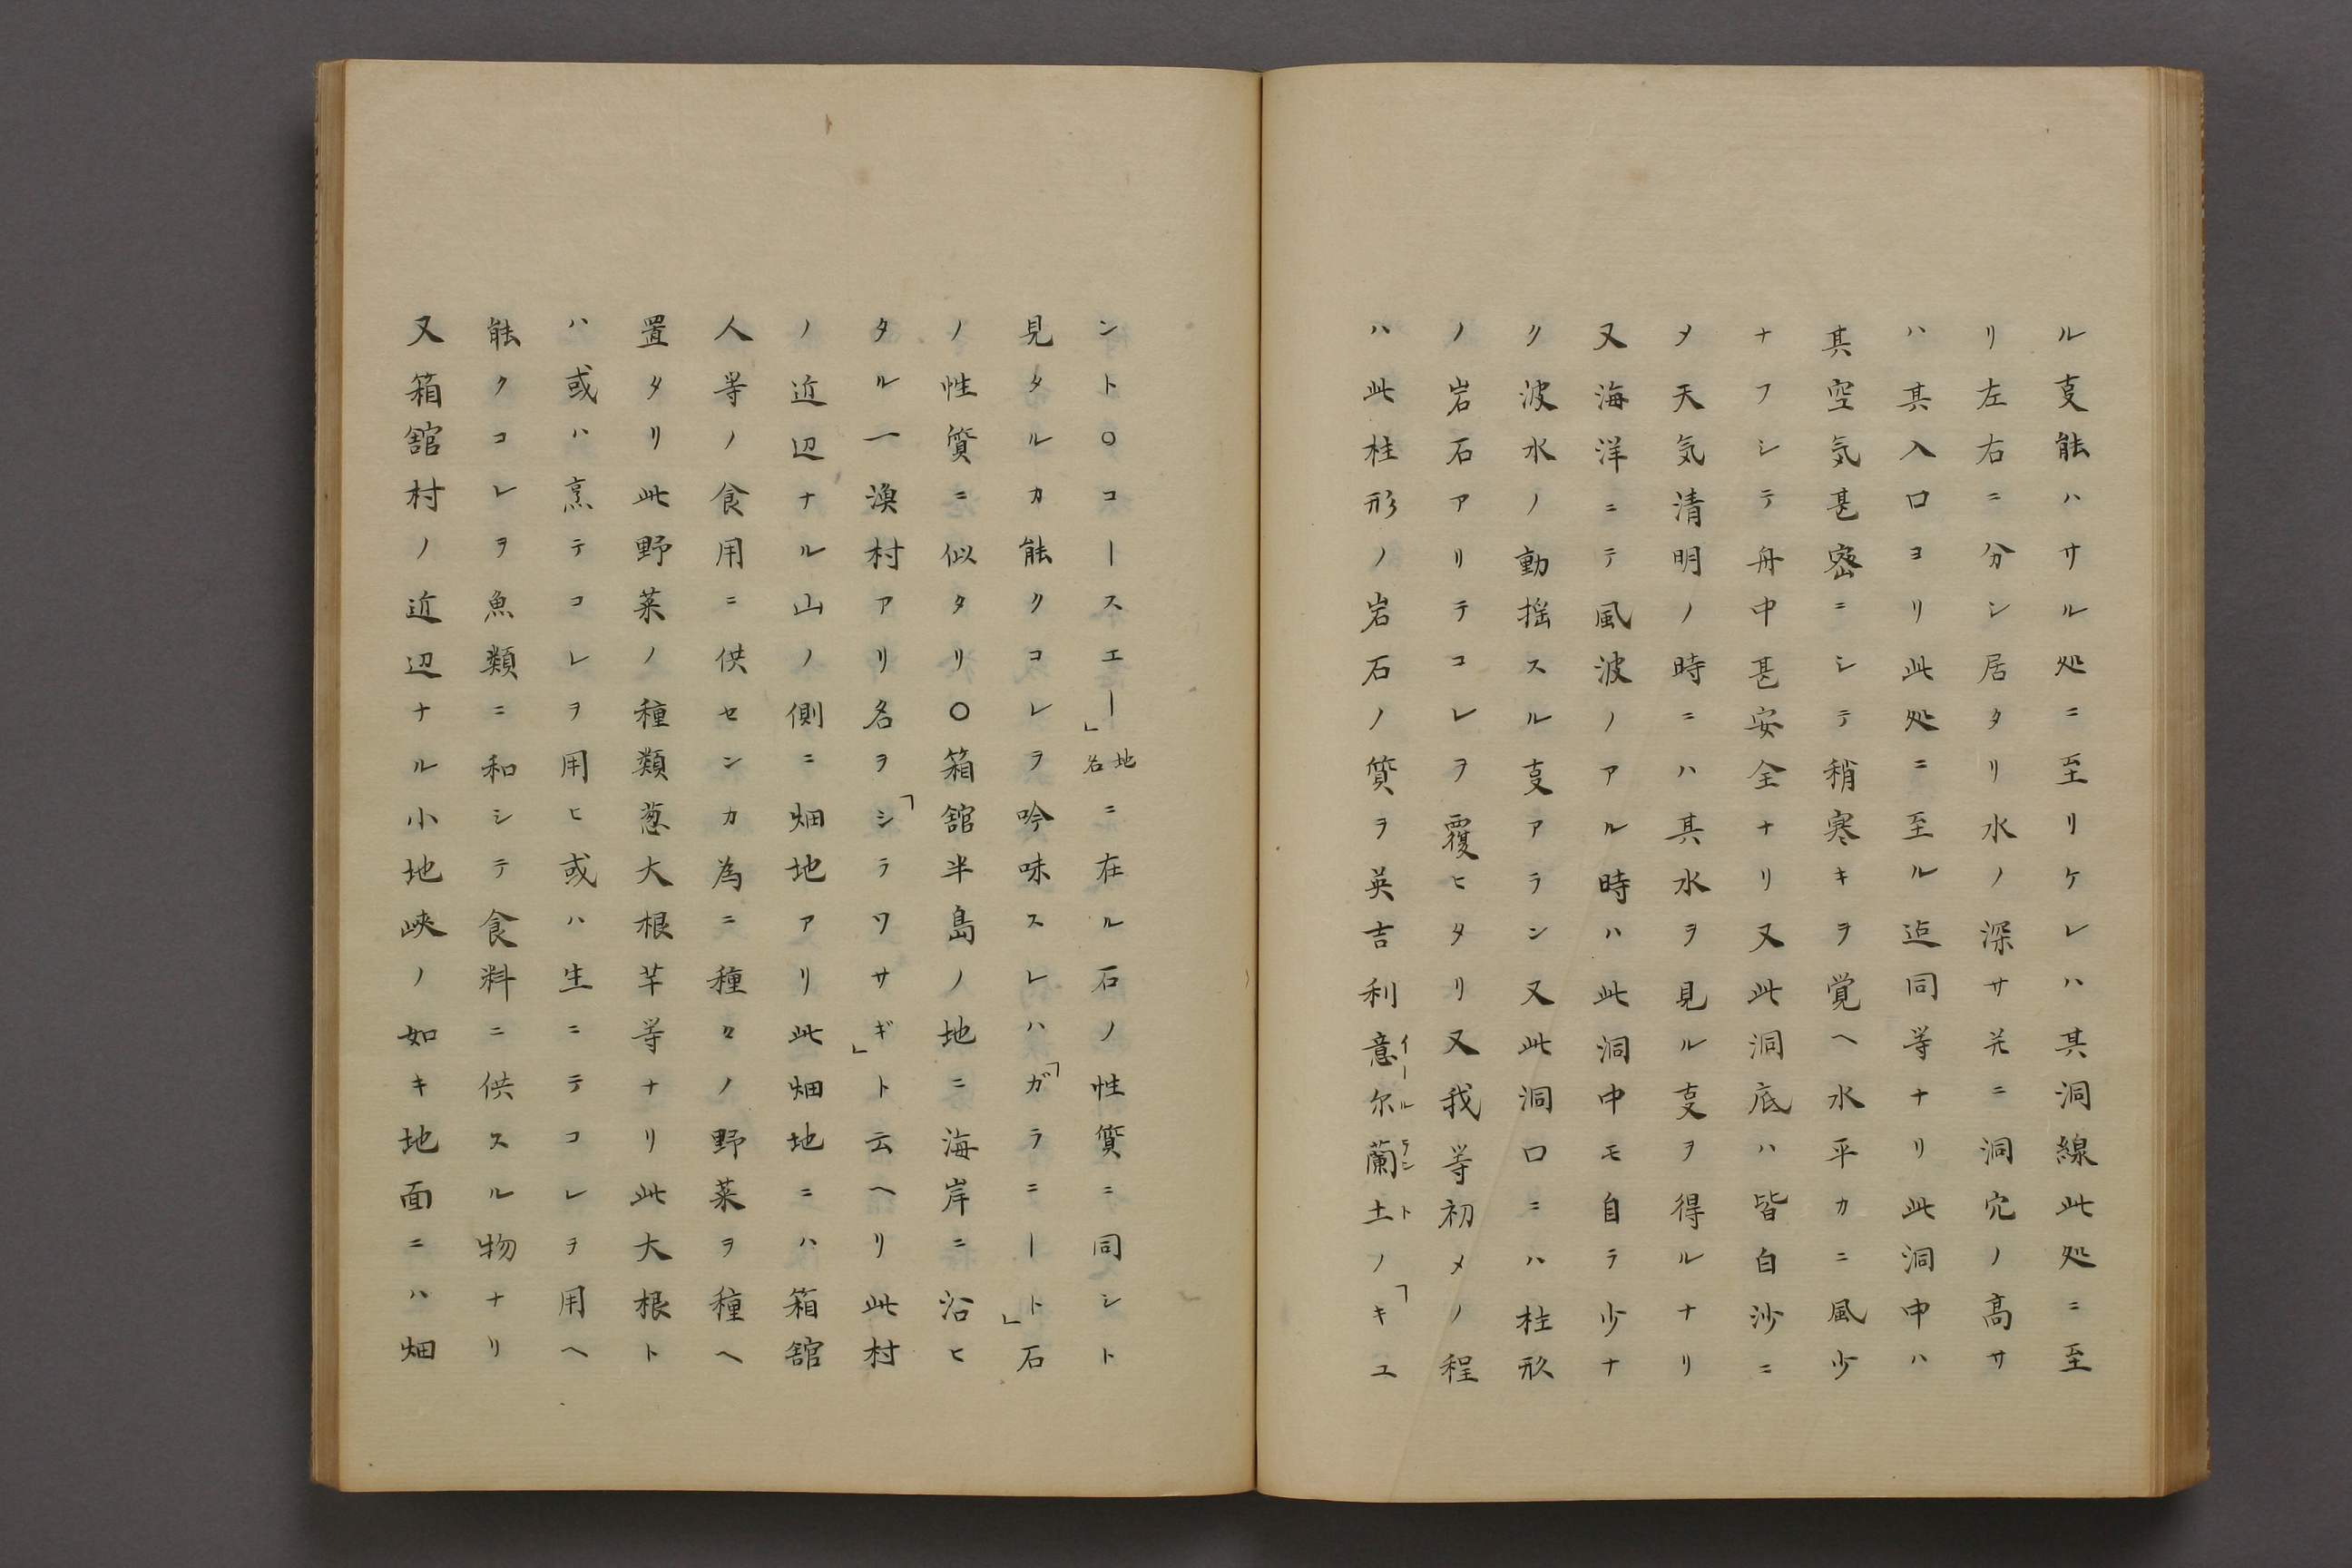 ル叓能ハサル処ニ至リケレハ其洞線此処ニ至
リ左右ニ分シ居タリ水ノ深サ并ニ洞穴ノ高サ
ハ其入口ヨリ此処ニ至ル迠同等ナリ此洞中ハ
其空気甚密ニシテ稍寒キヲ覚ヘ水平カニ風少
ナフシテ舟中甚安全ナリ又此洞底ハ皆白沙ニ
〆天気清明ノ時ニハ其水ヲ見ル叓ヲ得ルナリ
又海洋ニテ風波ノアル時ハ此洞中モ自テ少ナ
ク波水ノ動揺スル叓アラン又此洞口ニハ柱形
ノ岩石アリテコレヲ覆ヒタリ又我等初メノ程
ハ此柱形ノ岩石ノ質ヲ英吉利意尓蘭土イールラントノ「キユ
ント○コースエー」地名ニ在ル石ノ性質ニ同シト
見タルカ能クコレヲ吟味スレハ「ガラニート」石
ノ性質ニ似タリ○箱舘半島ノ地ニ海岸ニ沿ヒ
タル一漁村アリ名ヲ「シラワサギ」ト云ヘリ此村
ノ近辺ナル山ノ側ニ畑地アリ此畑地ニハ箱舘
人等ノ食用ニ供センカ為ニ種々ノ野菜ヲ種ヘ
置タリ此野菜ノ種類葱大根芋等ナリ此大根ト
ハ或ハ烹テコレヲ用ヒ或ハ生ニテコレヲ用ヘ
能クコレヲ魚類ニ和シテ食料ニ供スル物ナリ
又箱舘村ノ近辺ナル小地峡ノ如キ地面ニハ畑